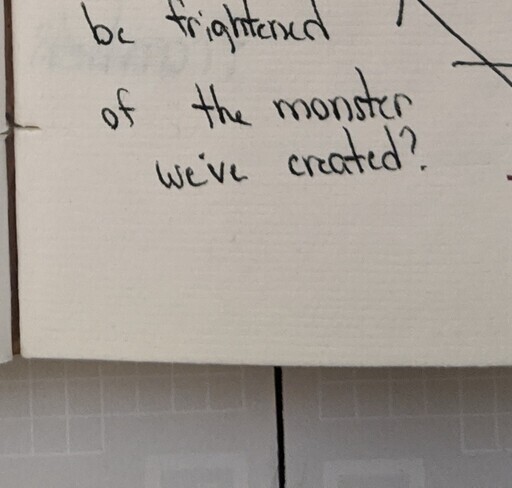 be frightened
of the monster
we've created?